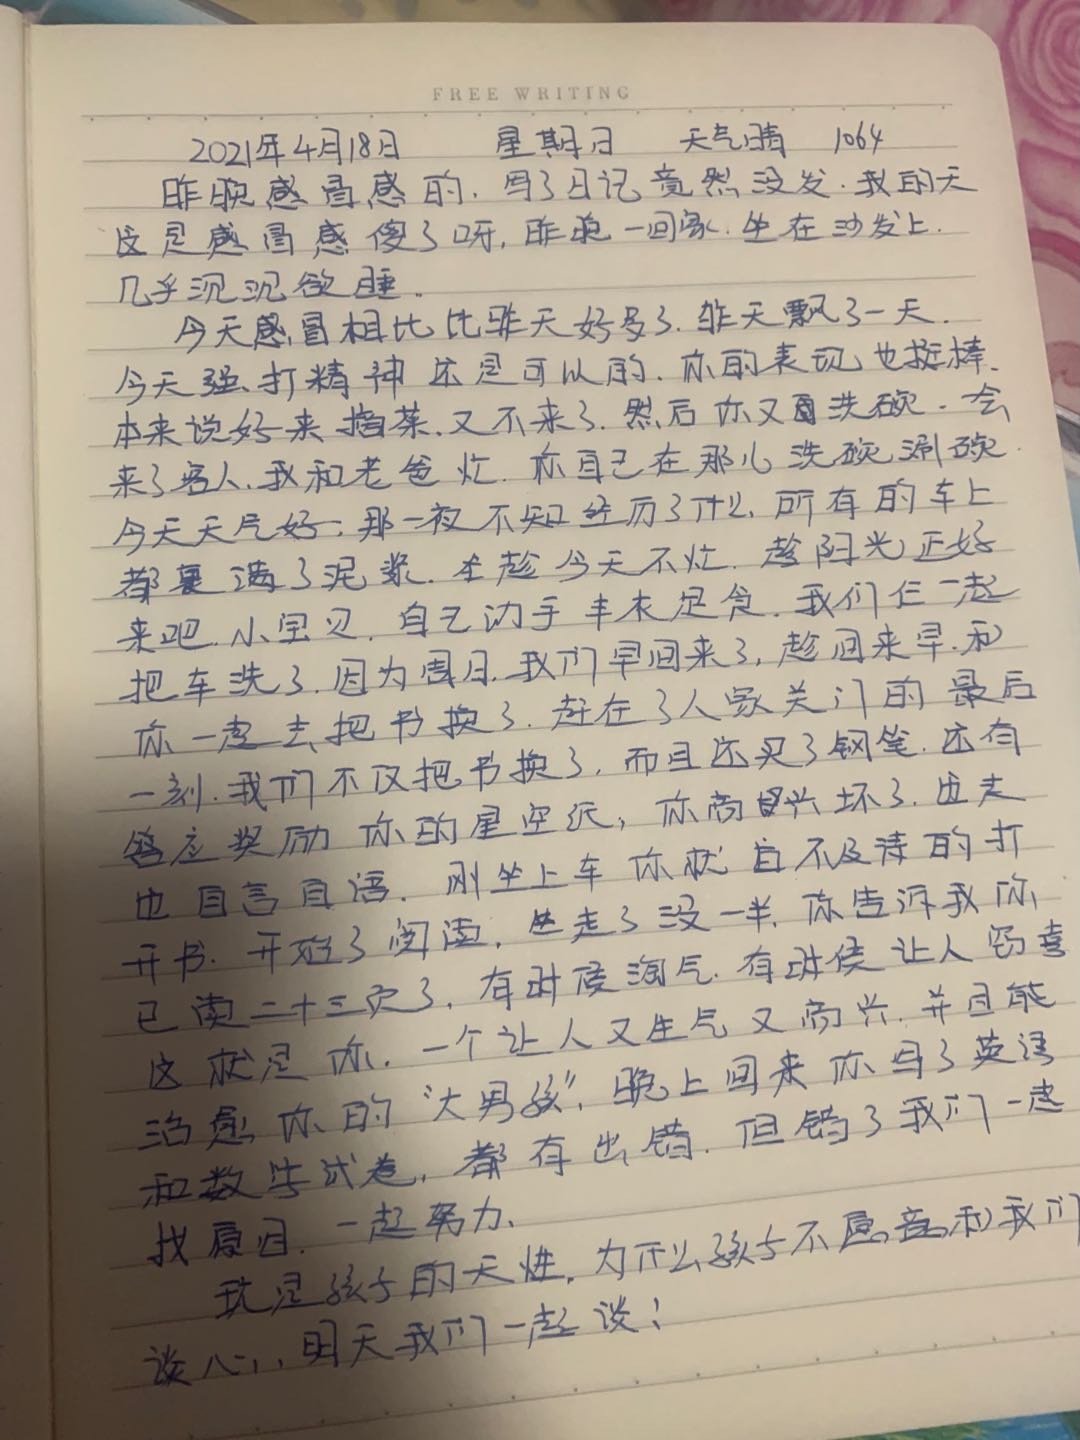 FREE WRITING
2021年4月18日 星期日 天气晴 1064
昨晚感冒感的.写了日记竟然没发.我的天
这是感冒感傻了呀,昨晚一回家.坐在沙发上.
几乎沉沉欲睡.
今天感冒相比比昨天好多了.昨天飘了一天.
今天强打精神还是可以的.你的表现也挺棒.
本来说好来摘菜.又不来了.然后你又洗碗.会
来了客人.我和老爸忙.你自己在那儿洗碗涮碗.
今天天气好.那一夜不知经历了什么,所有的车上
都裹满了泥浆.趁今天不忙.趁阳光正好
来吧.小宝贝.自己动手丰衣足食.我们仨一起
把车洗了.因为周日.我们早回来了,趁回来早.和
你一起去把书换了.赶在了人家关门的最后
一刻.我们不仅把书换了,而且还买了钢笔.还有
答应奖励你的星空纸,你高兴坏了.边走
也自言自语.刚坐上车你就自不及待的打
开书.开始了阅读,走了没一半.你告诉我你
已读二十三页了.有时候淘气.有时候让人窃喜
这就是你.一个让人又生气又高兴.并且能
治愈你的“大男孩”,晚上回来你写了英语
和数学试卷,都有出错.但错了我们一起
找原因.一起努力.
玩是孩子的天性,为什么孩子不愿意和我们
谈心,明天我们一起谈!